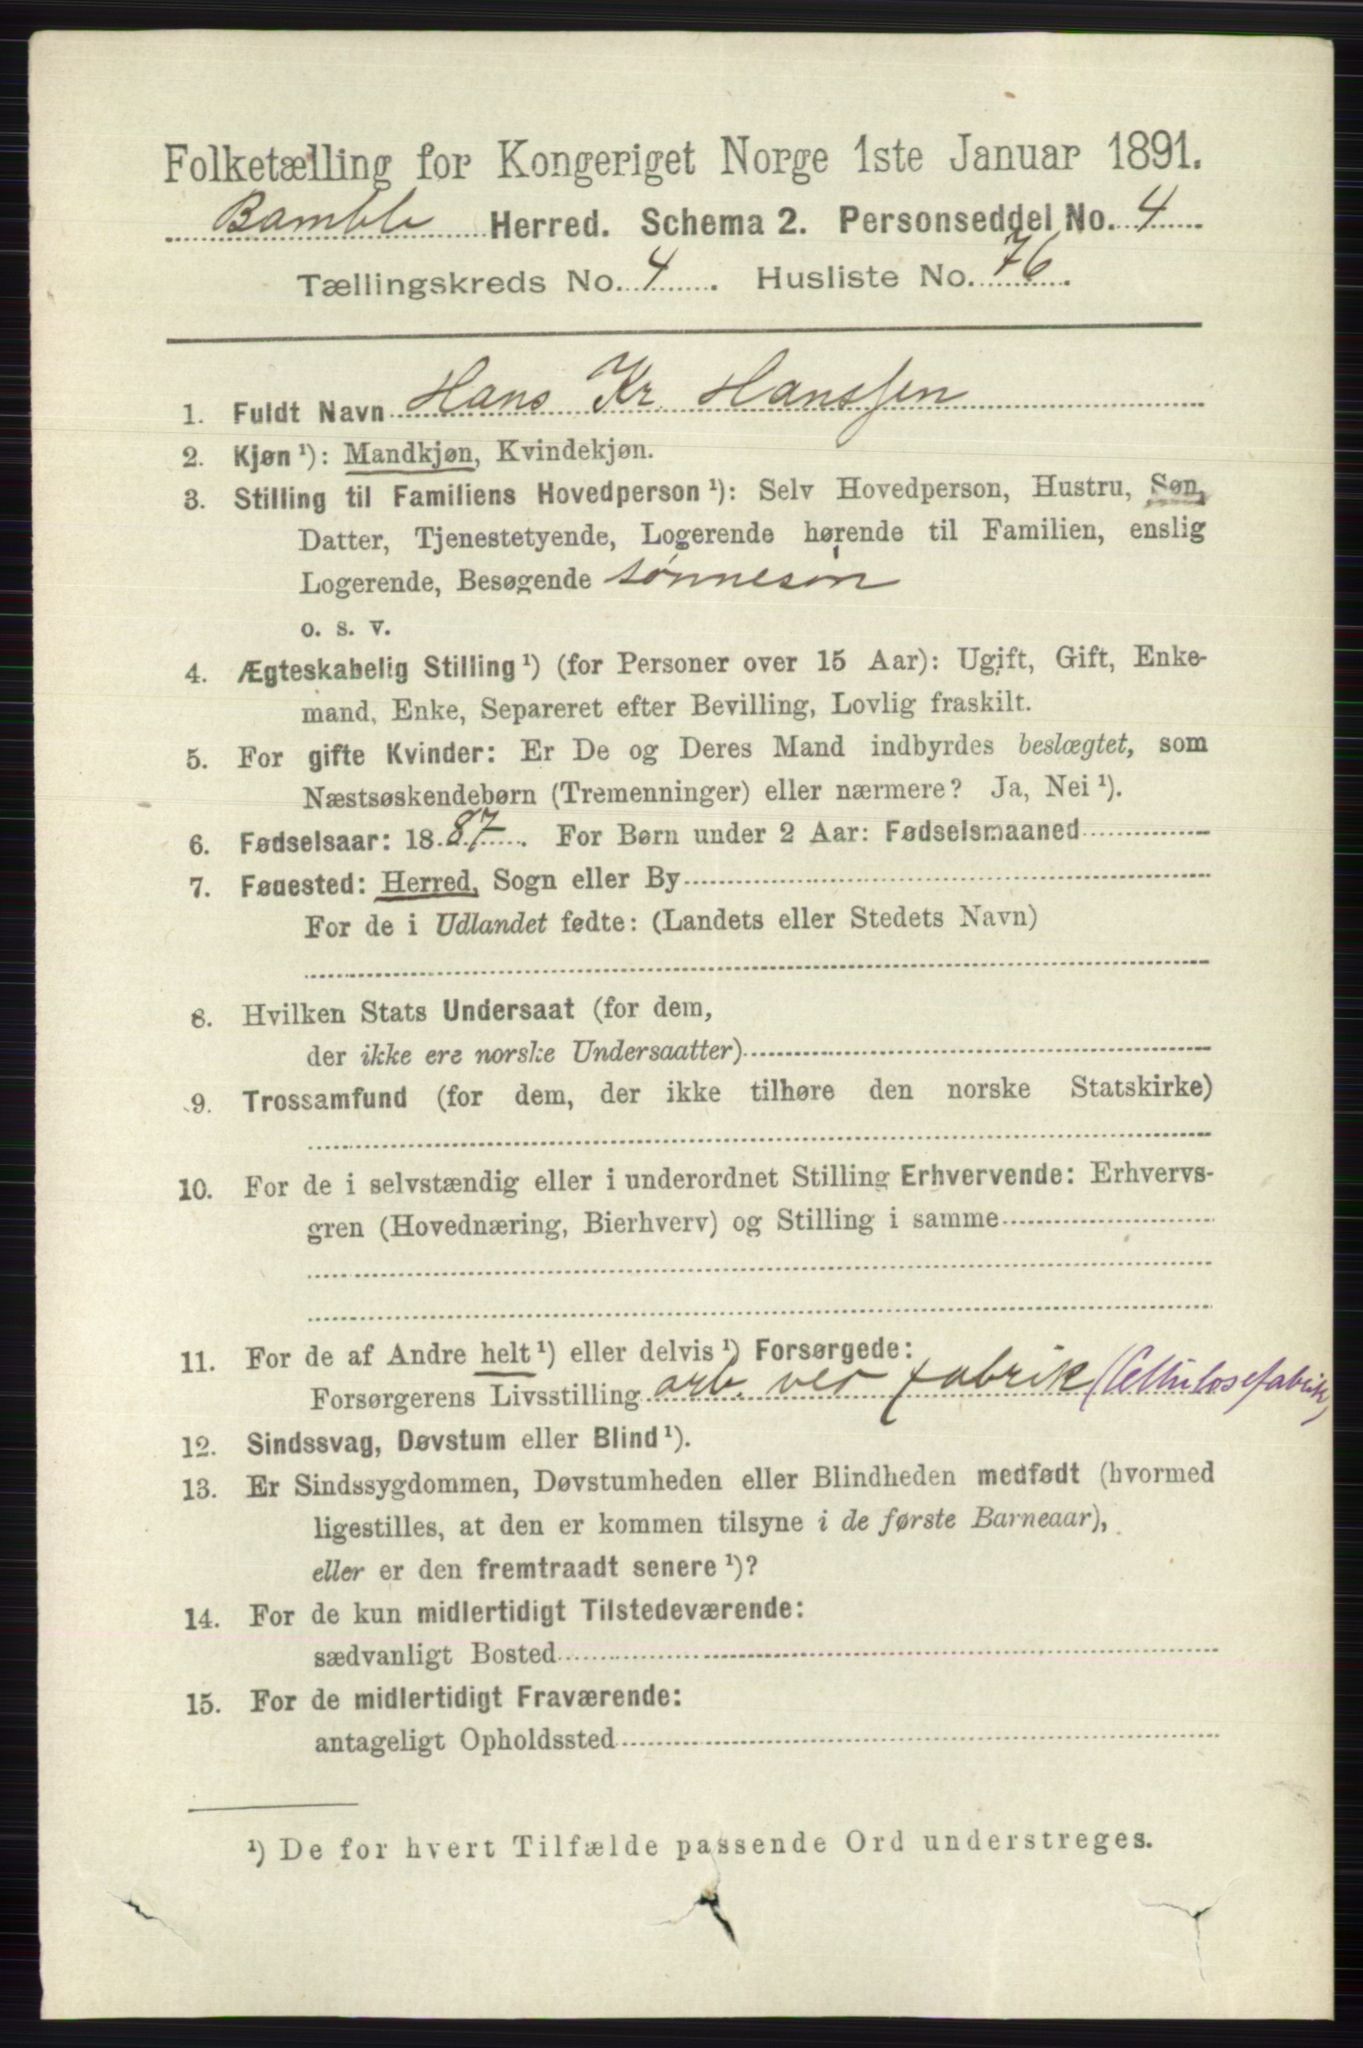 Folketælling for Kongeriget Norge 1ste Januar 1891.
Bamble Herred. Schema 2. Personseddel No. 4
Tællingskreds No. 4. Husliste No. 76.
1. Fuldt Navn Hans Kr Hanssen
2. Kjøn¹): Mandkjøn, Kvindekjøn.
3. Stilling til Familiens Hovedperson¹): Selv Hovedperson, Hustru, Søn,
Datter, Tjenestetyende, Logerende hørende til Familien, enslig
Logerende, Besøgende sønnesøn
o. s. v.
4. Ægteskabelig Stilling¹) (for Personer over 15 Aar): Ugift, Gift, Enke-
mand, Enke, Separeret efter Bevilling, Lovlig fraskilt.
5. For gifte Kvinder: Er De og Deres Mand indbyrdes beslægtet, som
Næstsøskendebørn (Tremenninger) eller nærmere? Ja, Nei¹).
6. Fødselsaar: 1887. For Børn under 2 Aar: Fødselsmaaned
7. Fødested: Herred, Sogn eller By
For de i Udlandet fødte: (Landets eller Stedets Navn)
8. Hvilken Stats Undersaat (for dem,
der ikke ere norske Undersaatter)
9. Trossamfund (for dem, der ikke tilhøre den norske Statskirke)
10. For de i selvstændig eller i underordnet Stilling Erhvervende: Erhvervs-
gren (Hovednæring, Bierhverv) og Stilling i samme
11. For de af Andre helt¹) eller delvis¹) Forsørgede:
Forsørgerens Livsstilling arb. ved fabrik (Cellulosefabrik)
12. Sindssvag, Døvstum eller Blind¹).
13. Er Sindssygdommen, Døvstumheden eller Blindheden medfødt (hvormed
ligestilles, at den er kommen tilsyne i de første Barneaar),
eller er den fremtraadt senere¹)?
14. For de kun midlertidigt Tilstedeværende:
sædvanligt Bosted
15. For de midlertidigt Fraværende:
antageligt Opholdssted
¹) De for hvert Tilfælde passende Ord understreges.